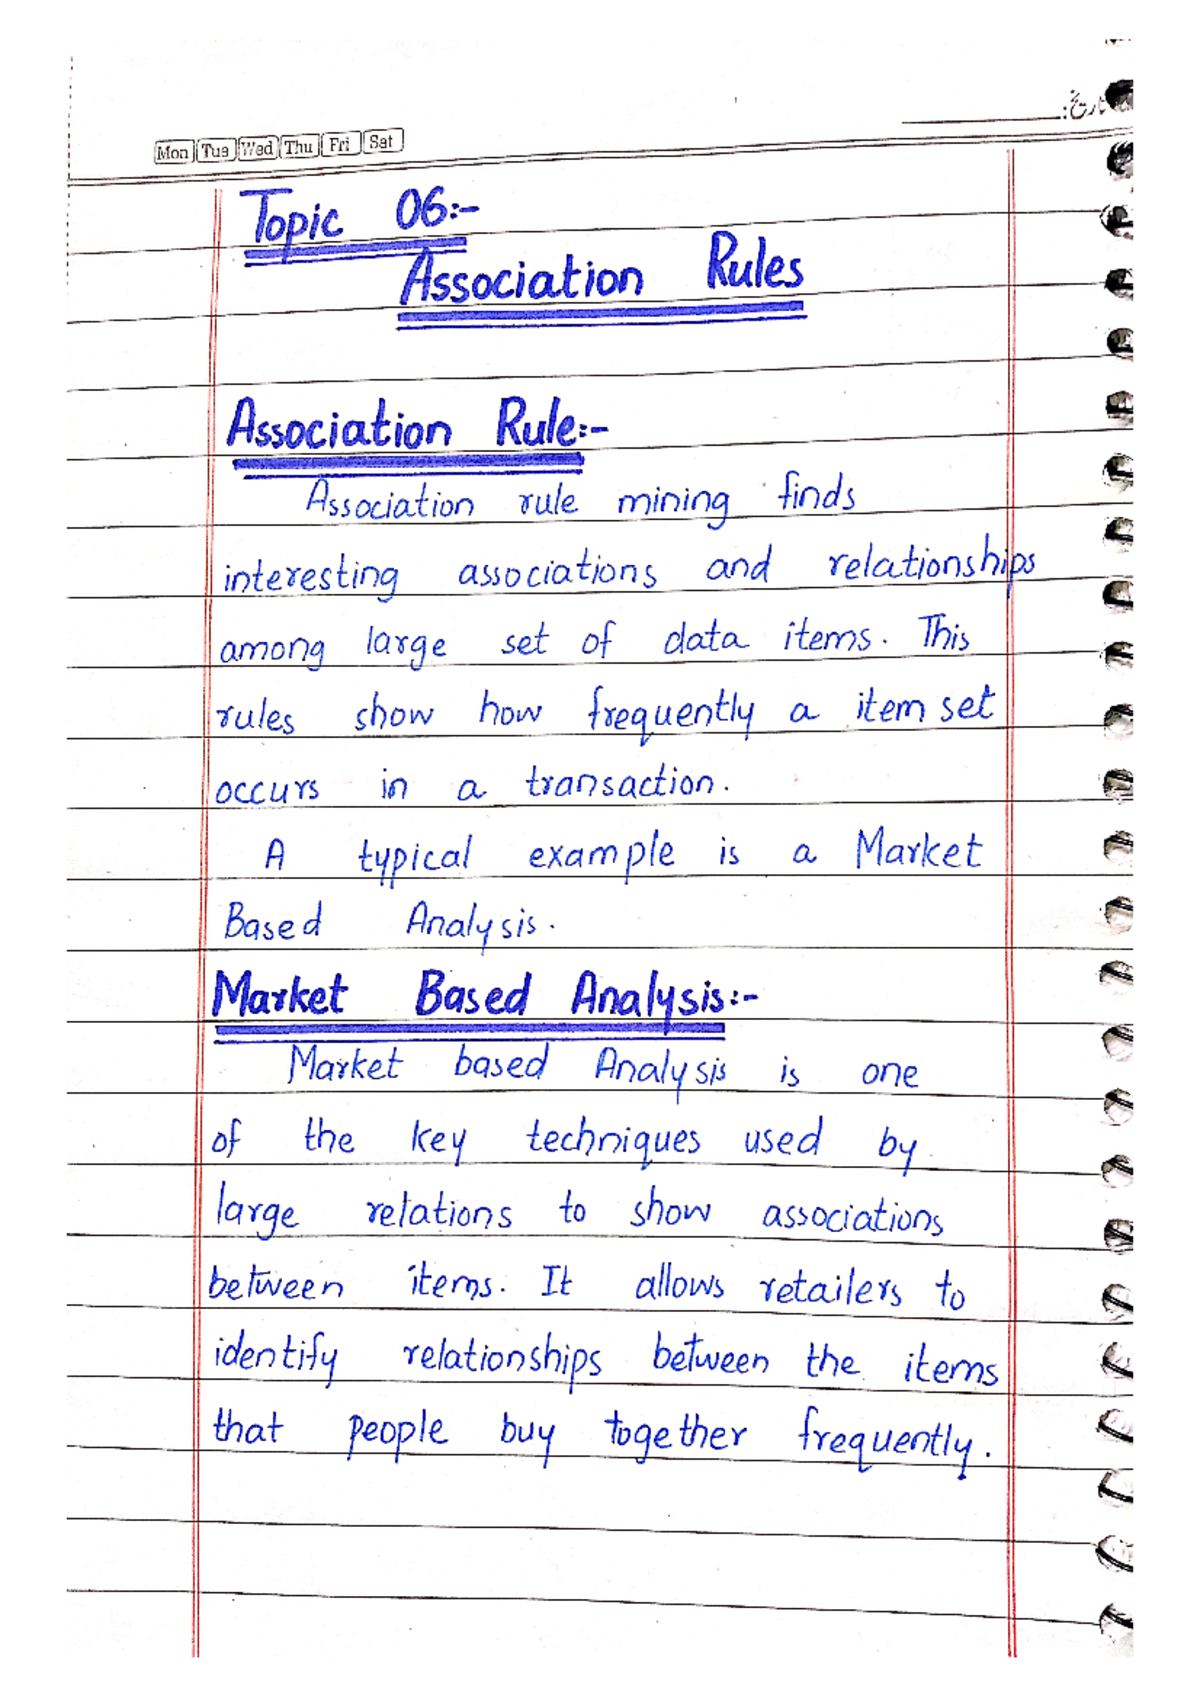 تاریخ:
Mon Tue Wed Thu Fri Sat
Topic 06:-
Association Rules
Association Rule:-
Association rule mining finds
interesting associations and relationships
among large set of data items. This
rules show how frequently a item set
occurs in a transaction.
A typical example is a Market
Based Analysis.
Market Based Analysis:-
Market based Analysis is one
of the key techniques used by
large relations to show associations
between items. It allows retailers to
identify relationships between the items
that people buy together frequently.